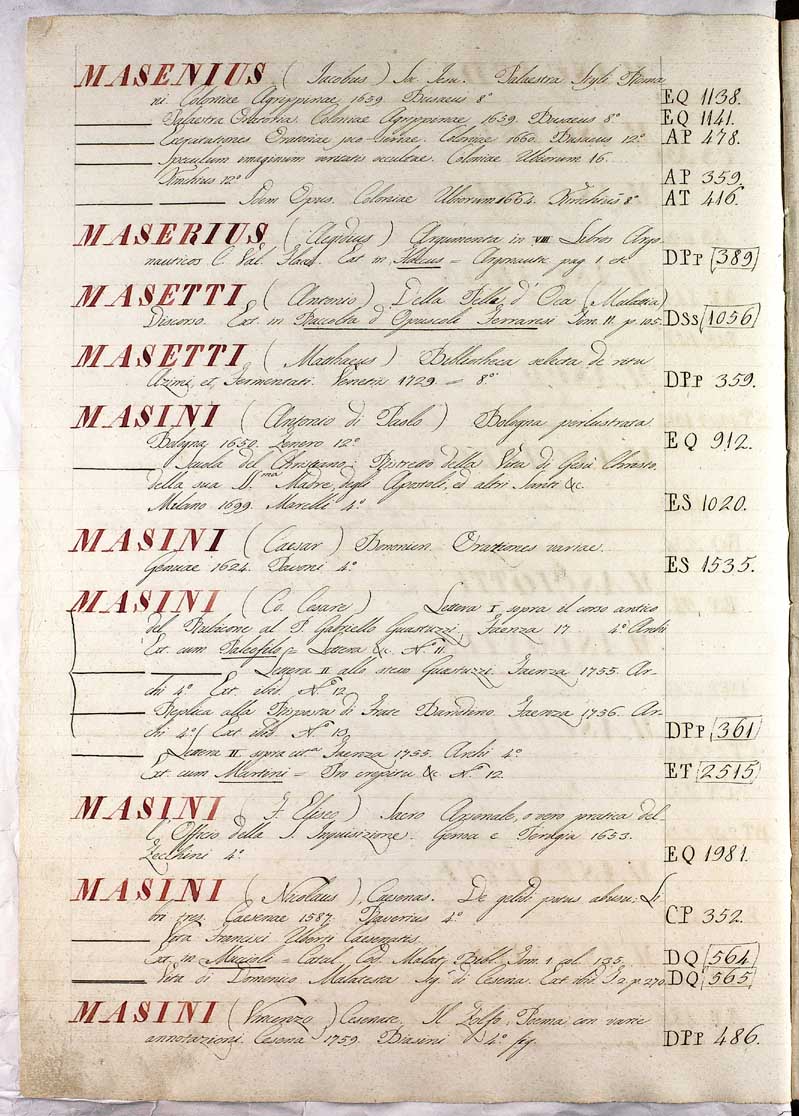 MASENIUS (Jacobus) Soc. Jesu. Palaestra Styli Roma
ni. Coloniae Agrippinae 1659. Busaeus 8° EQ 1138.
Palaestra Oratoria. Coloniae Agrippinae 1659. Busaeus 8° EQ 1141.
Exercitationes Oratoriae Coloniae 1660. Busaeus 12° AP 478.
Speculum imaginum veritatis occultae. Coloniae Ubiorum 16
Kinchius 12° AP 359.
Idem Opus. Coloniae Ubiorum 1664. Kinchius 8° AT 416.
MASERIUS (Aegidius) Argumenta in VIII Libros Argo
nauticos C. Val. Flacci. Ext. in = Argonaut. pag. 1 etc DPp 389
MASETTI (Antonio) Della Pelle d'Oca (Malattia)
Discorso. Ext. in Raccolta d'Opuscoli Ferraresi Tom. II. p. 105. DSs 1056
MASETTI (Matthaeus) Bibliotheca selecta de ritu
Azimi et Fermentati. Venetiis 1729 = 8° DPp 359.
MASINI (Antonio di Paolo) Bologna perlustrata
Bologna 1650. Zenero 12° EQ 912.
Scuola del Christiano: Ristretto della Vita di Gesù Christo,
della sua SS.ma Madre, degli Apostoli, ed altri Santi &c.
Milano 1699. Marcelli 4° ES 1020.
MASINI (Caesar) Bononien. Orationes variae.
Genuae 1624. Pavoni 4° ES 1535.
MASINI (Co. Cesare) Lettera I sopra il corso antico
del Rubicone al P. Gabriello Guastuzzi. Faenza 17 4° Archi
Ext. cum Paleofilo = Lettera &c. N.° 11.
Lettera II allo stesso Guastuzzi. Faenza 1755. Ar-
chi 4° Ext. ibid. N.° 12
Replica alla Risposta di Frate Bundino. Faenza 1756. Ar-
chi 4° Ext. ibid. N.° 13. DPp 361
Lettera II. sopra cit.a Faenza 1755. Archi 4°
Ext. cum Martini = Pro &c. N.° 12. ET 2515
MASINI (F. Eliseo) Sacro Arsenale, overo pratica del-
l'Officio della S. Inquisizione. Genova e Perugia 1653.
Zecchini 4° EQ 1981.
MASINI (Nicolaus) Caesenas. De gelidi potus abusu: Li
bri tres. Caesenae 1587. Raverius 4° CP 352.
Vita Francisci Uberti Caesenatis.
Ext. in Muccioli = Catal. Cod. Malat. Bibl. Tom. 1 col. 135. DQ 564
Vita di Domenico Malatesta Sig.r di Cesena. Ext. ibid. T. 2. p. 270. DQ 565
MASINI (Vincenzo) Cesenate. Il Zolfo, Poema con varie
annotazioni. Cesena 1759. Biasini 4° fig. DPp 486.